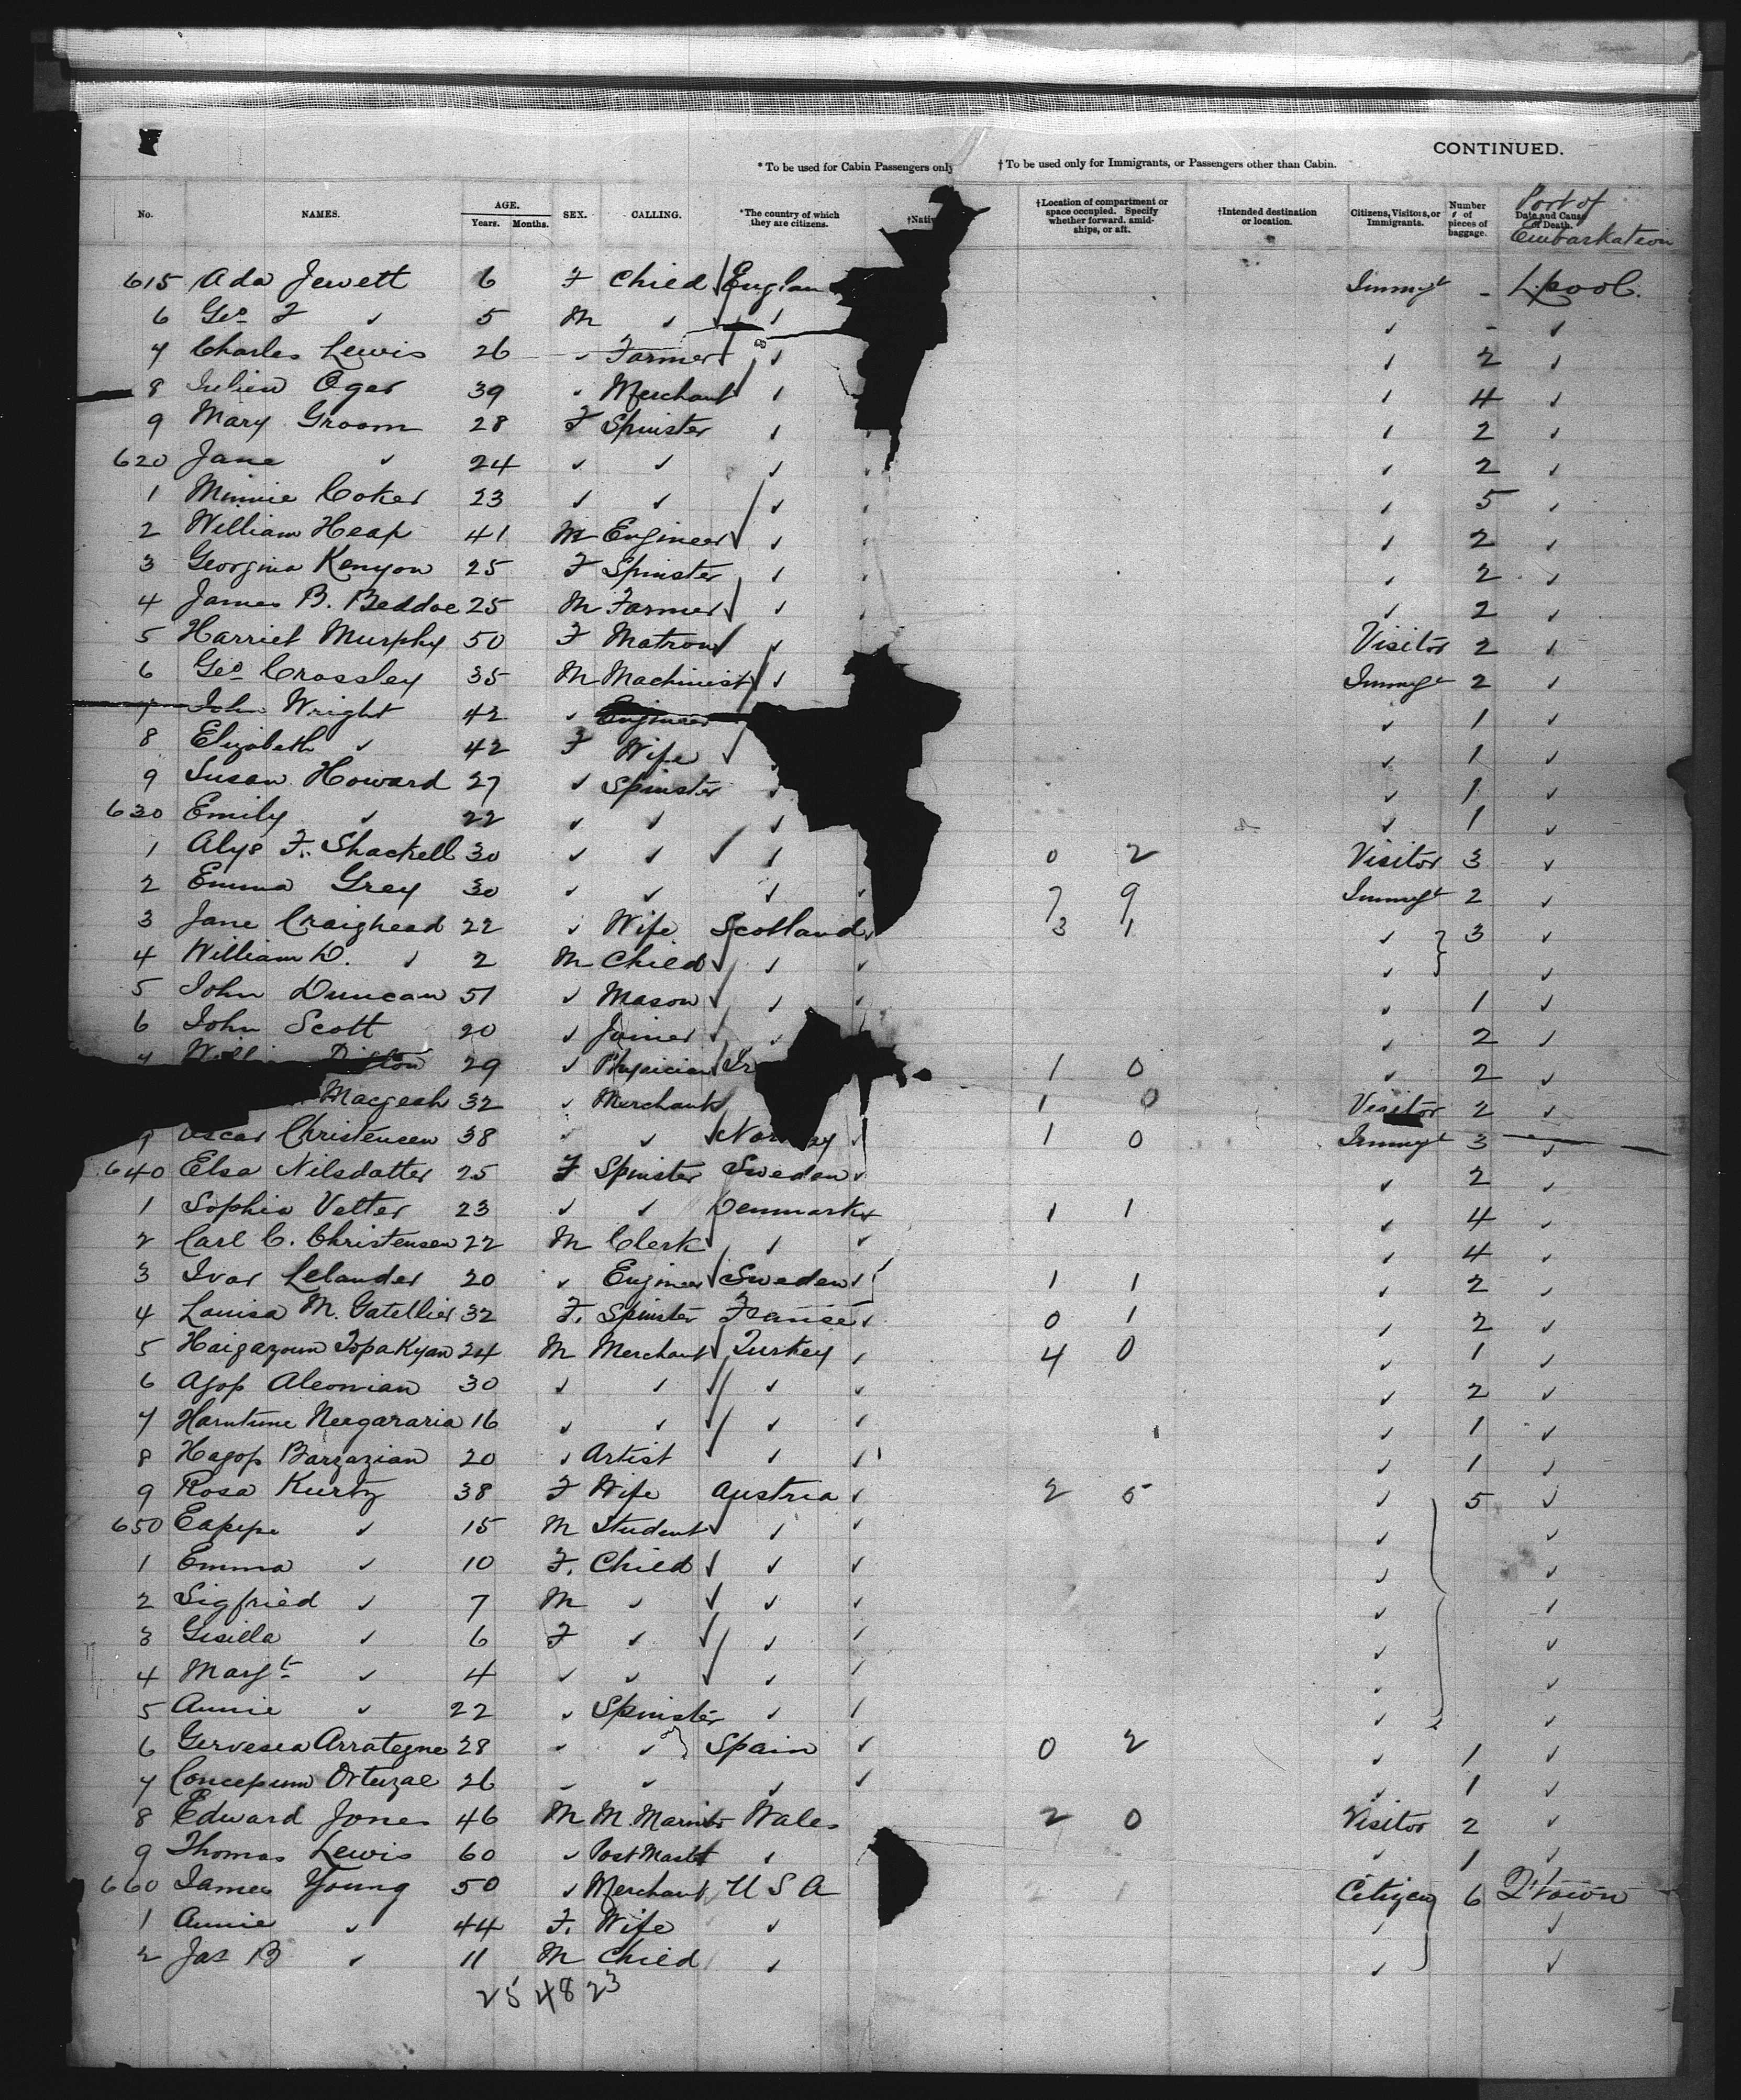 CONTINUED.
* To be used for Cabin Passengers only † To be used only for Immigrants, or Passengers other than Cabin.
No. NAMES. AGE. Years. Months. SEX. CALLING. *The country of which they are citizens. †Nativ †Location of compartment or space occupied. Specify whether forward, amidships, or aft. †Intended destination or location. Citizens, Visitors, or Immigrants. Number of pieces of baggage. Date and Cause of Death. Port of Embarkation
615 Ada Jewett 6 F Child ✓ Englan Immgt - L'pool.
6 Geo F ✓ 5 M ✓ ✓ ✓ ✓ - ✓
7 Charles Lewis 26 ✓ Farmer ✓ ✓ ✓ 2 ✓
8 Julien Oger 39 ✓ Merchant ✓ ✓ ✓ 4 ✓
9 Mary Groom 28 F Spinster ✓ ✓ 2 ✓
620 Jane ✓ 24 ✓ ✓ ✓ ✓ 2 ✓
1 Minnie Coker 23 ✓ ✓ ✓ ✓ 5 ✓
2 William Heap 41 M Engineer ✓ ✓ ✓ 2 ✓
3 Georgina Kenyon 25 F Spinster ✓ ✓ 2 ✓
4 James B. Beddoe 25 M Farmer ✓ ✓ ✓ 2 ✓
5 Harriet Murphy 50 F Matron ✓ ✓ Visitor 2 ✓
6 Geo Crossley 35 M Machinist ✓ ✓ Immgt 2 ✓
7 John Wright 42 ✓ Engineer ✓ 1 ✓
8 Elizabeth ✓ 42 F Wife ✓ ✓ 1 ✓
9 Susan Howard 27 ✓ Spinster ✓ ✓ 1 ✓
630 Emily ✓ 22 ✓ ✓ ✓ ✓ 1 ✓
1 Alys F. Shackell 30 ✓ ✓ ✓ ✓ 0 2 Visitor 3 ✓
2 Emma Grey 30 ✓ ✓ ✓ ✓ 7 9 Immgt 2 ✓
3 Jane Craighead 22 ✓ Wife Scotland ✓ 3 1 ✓ 3 ✓
4 William D. ✓ 2 M Child ✓ ✓ ✓ ✓ ✓
5 John Duncan 51 ✓ Mason ✓ ✓ ✓ ✓ 1 ✓
6 John Scott 20 ✓ Joiner ✓ ✓ ✓ 2 ✓
7 29 ✓ Physician ✓ Ir 1 0 ✓ 2 ✓
Macgeah 32 ✓ Merchant ✓ 1 0 Visitor 2 ✓
9 Oscar Christensen 38 ✓ ✓ ✓ Nor ay ✓ 1 0 Immgt 3 ✓
640 Elsa Nilsdatter 25 F Spinster Sweden ✓ ✓ 2 ✓
1 Sophia Velter 23 ✓ ✓ Denmark ✓ 1 1 ✓ 4 ✓
2 Carl C. Christensen 22 M Clerk ✓ ✓ ✓ ✓ 4 ✓
3 Ivar Lelander 20 ✓ Engineer ✓ Sweden ✓ 1 1 ✓ 2 ✓
4 Louisa M. Gatellier 32 F. Spinster France ✓ 0 1 ✓ 2 ✓
5 Haigazoun Topakyan 24 M Merchant ✓ Turkey ✓ 4 0 ✓ 1 ✓
6 Agop Aleonian 30 ✓ ✓ ✓ ✓ ✓ ✓ 2 ✓
7 Harutune Neegararia 16 ✓ ✓ ✓ ✓ ✓ ✓ 1 ✓
8 Hagop Bargazian 20 ✓ Artist ✓ ✓ ✓ ✓ 1 ✓
9 Rosa Kurtz 38 F Wife Austria ✓ 2 5 ✓ 5 ✓
650 Eapepe ✓ 15 M Student ✓ ✓ ✓ ✓ ✓
1 Emma ✓ 10 F. Child ✓ ✓ ✓ ✓ ✓
2 Sigfried ✓ 7 M ✓ ✓ ✓ ✓ ✓ ✓
3 Gisella ✓ 6 F ✓ ✓ ✓ ✓ ✓ ✓
4 Margt ✓ 4 ✓ ✓ ✓ ✓ ✓ ✓ ✓
5 Annie ✓ 22 ✓ Spinster ✓ ✓ ✓ ✓
6 Gervesea Arrategne 28 ✓ ✓ Spain ✓ 0 2 ✓ 1 ✓
7 Concepium Ortuzae 26 ✓ ✓ ✓ ✓ ✓ 1 ✓
8 Edward Jones 46 M M. Marinr Wales 2 0 Visitor 2 ✓
9 Thomas Lewis 60 ✓ Post Mastr ✓ ✓ 1 ✓
660 James Young 50 ✓ Merchant U S A 2 1 Citizen 6 Q'town
1 Annie ✓ 44 F. Wife ✓ ✓ ✓
2 Jas B ✓ 11 M Child ✓ ✓ ✓
25 48 23